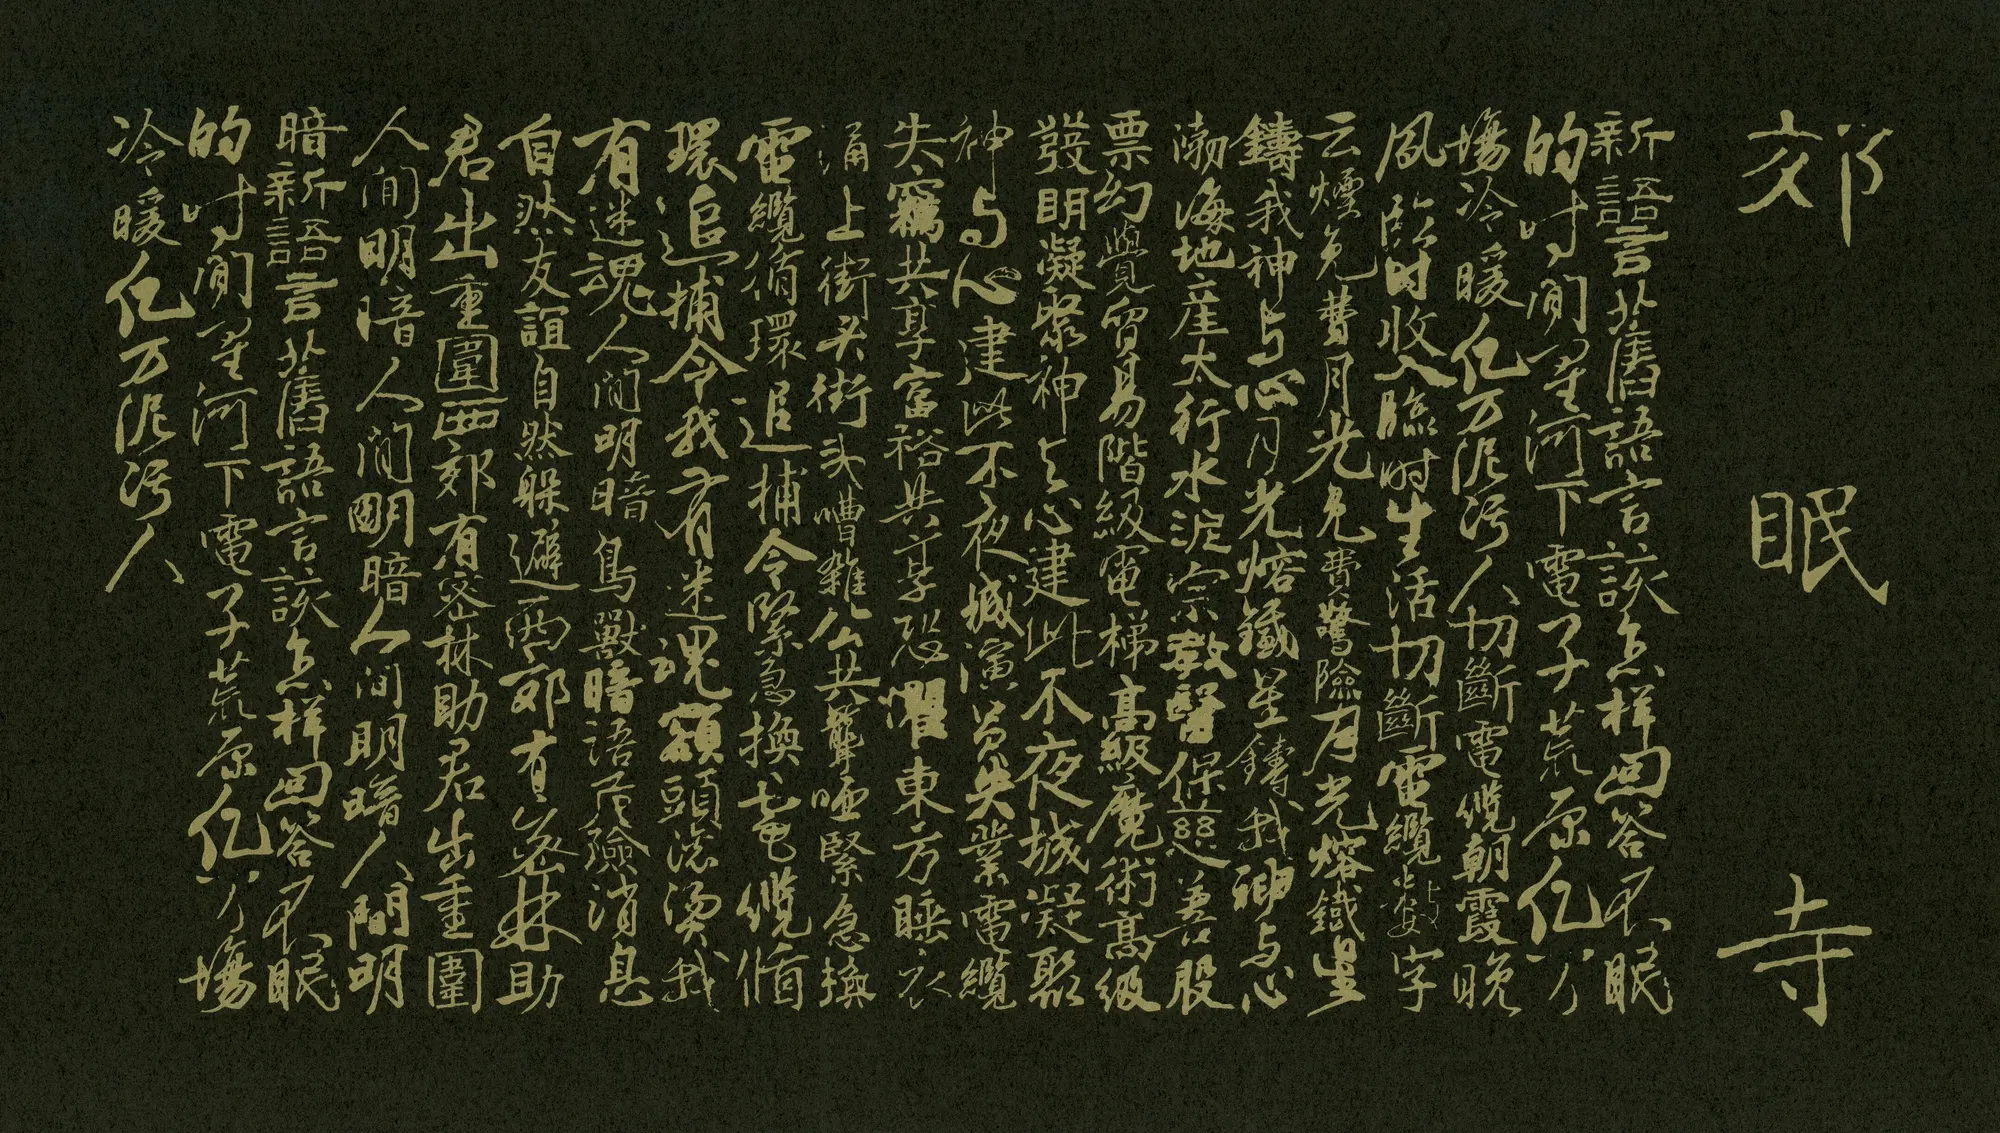 郊眠寺
新語言舊語言該怎样回答不眠
的时間星河下電子荒原亿万
塲冷暖亿万泥污人切斷電缆朝霞晚
风臨时收入臨时生活切斷電纜數字
云煙免費月光免費驚險月光熔鐵星
鑄我神与心月光熔鐵星鑄我神与心
渤海地産太行水泥宗教醫保慈善股
票幻覺貿易階級電梯高級魔術高級
發明凝聚神与心建此不夜城凝聚
神与心建此不夜城演員失業電纜
失竊共享富裕共享恐懼東方睡衣
涌上街头街头嘈雜公共聾啞緊急換
電纜循環追捕令緊急換电缆循
環追捕令我有迷魂額頭滾燙我
有迷魂人間明暗鳥獸暗語危險消息
自然友誼自然躲避西郊有密林助
君出重圍西郊有密林助君出重圍
人間明暗人間明暗人間明暗人間明
暗新語言舊語言該怎样回答不眠
的时間星河下電子荒原亿万塲
冷暖亿万泥污人